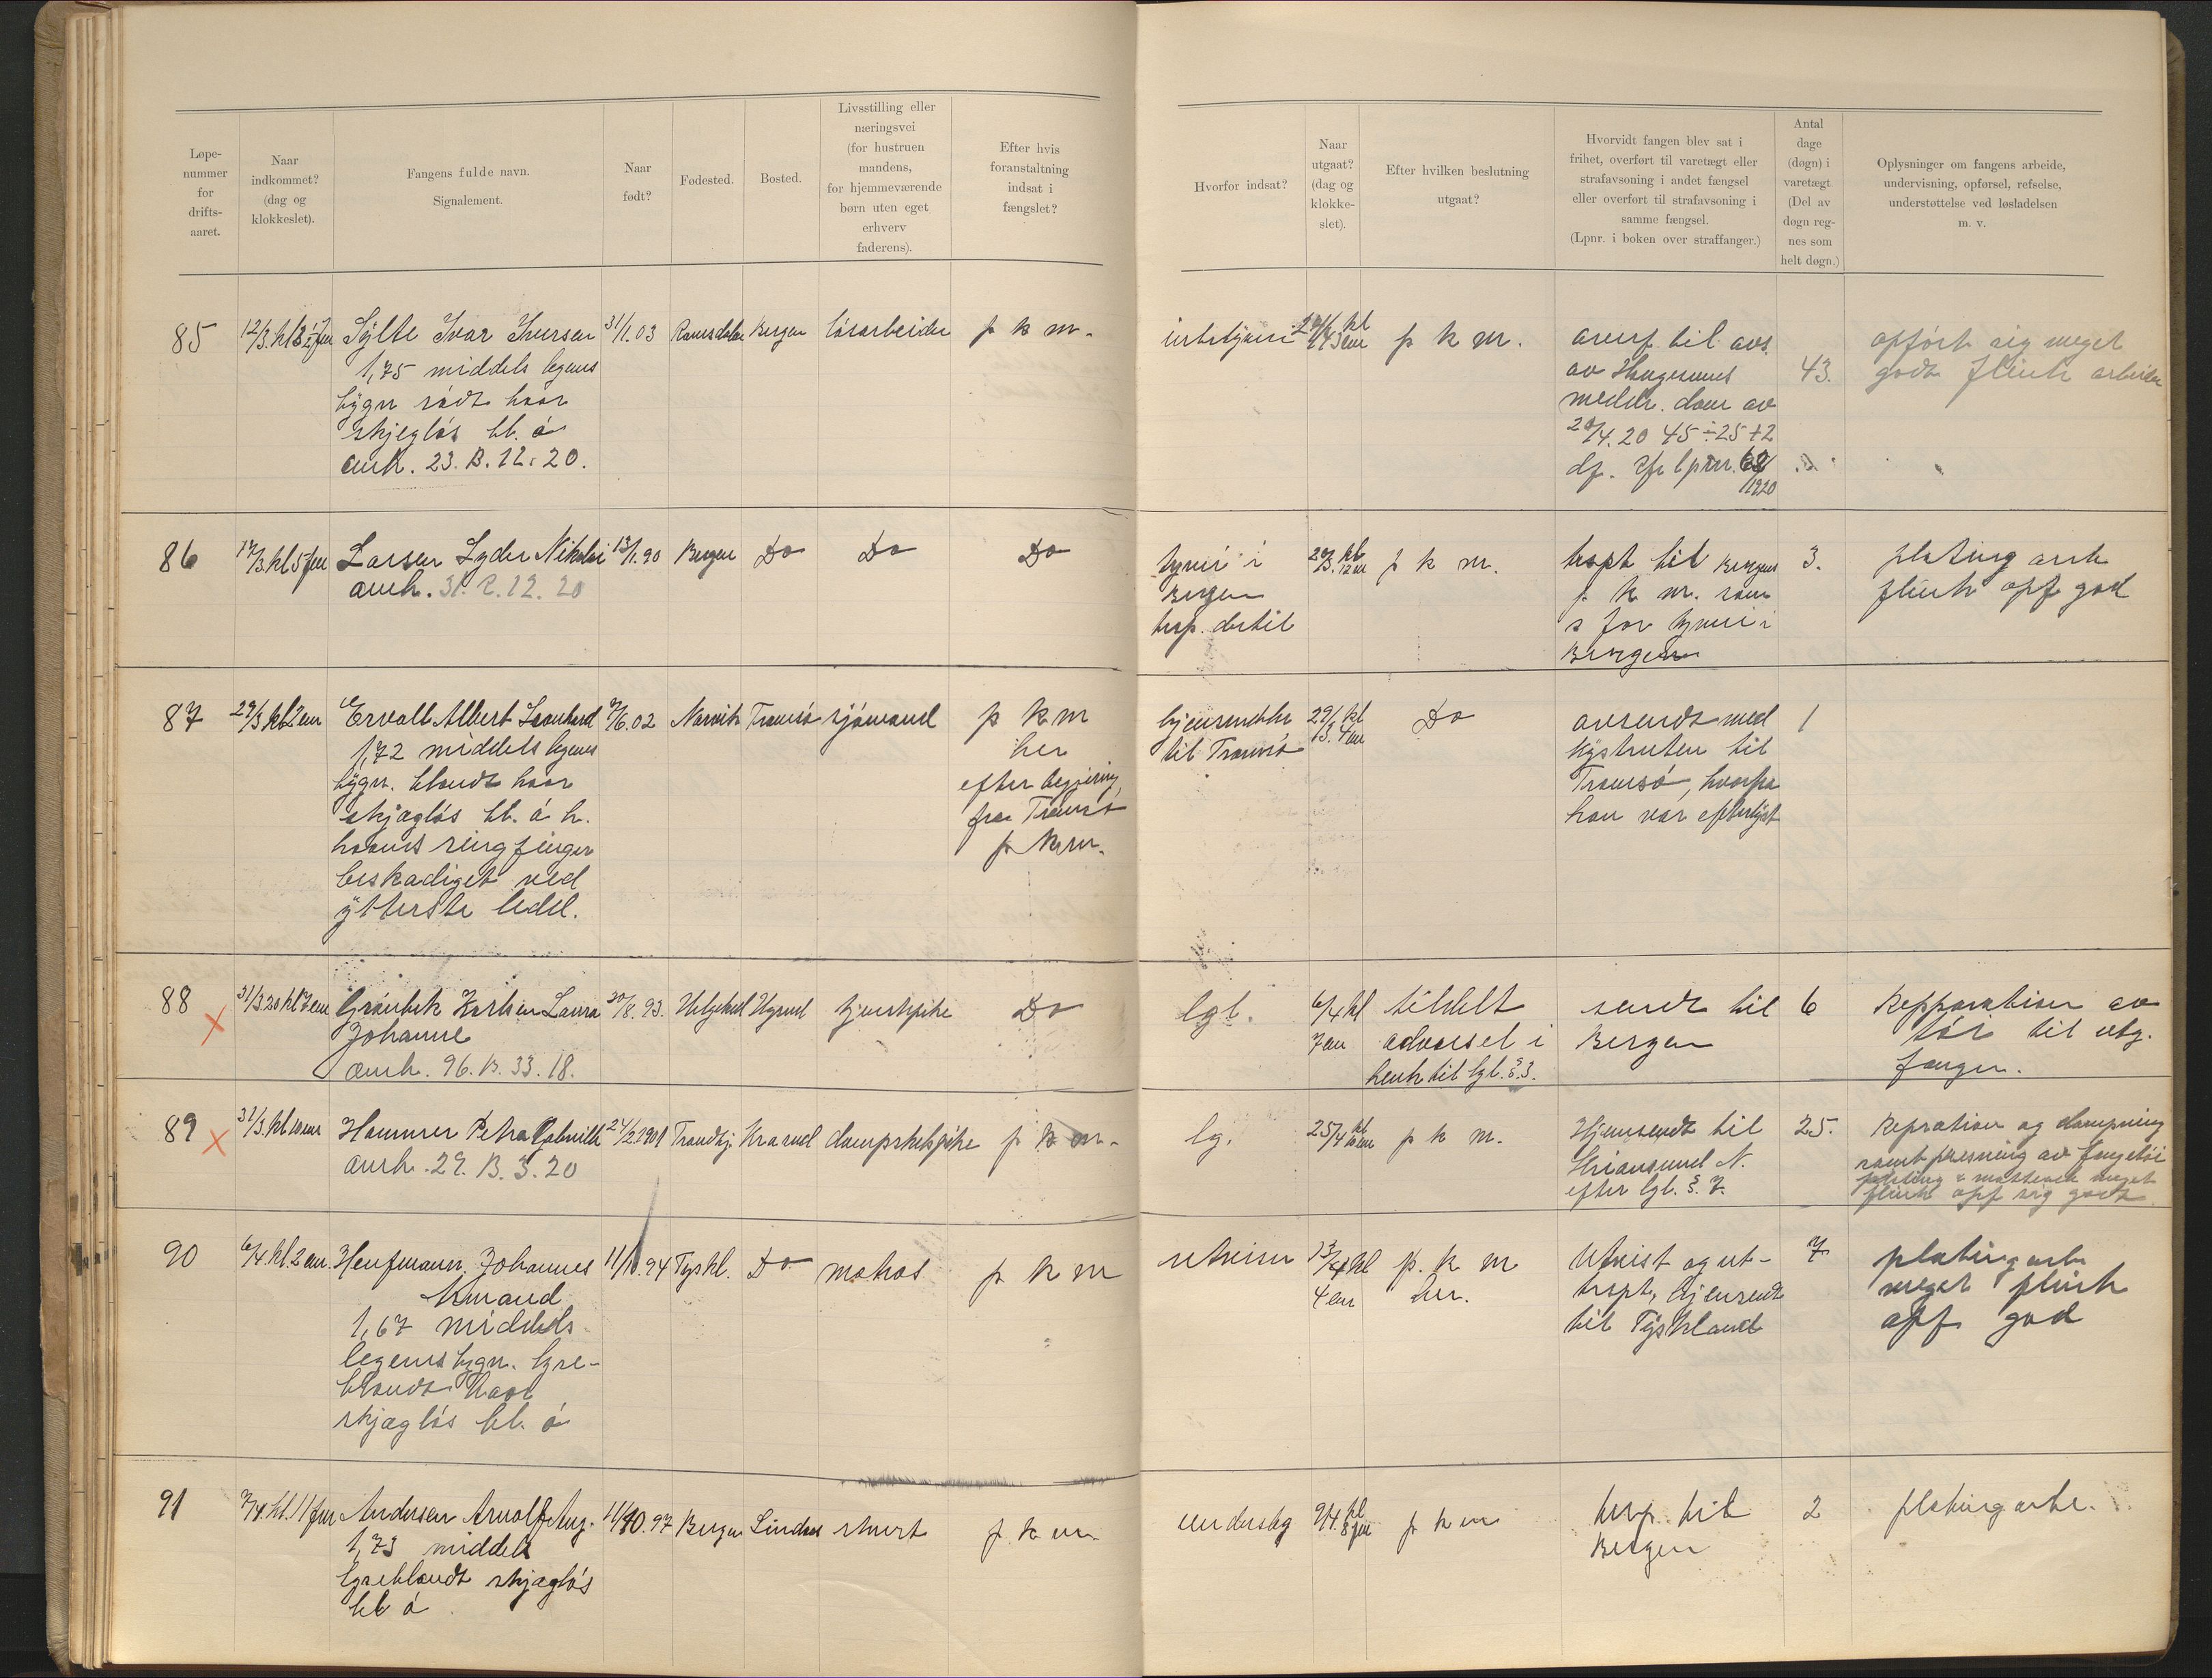 Løpe-
nummer
for
drifts-
aaret.
Naar
indkommet?
(dag og
klokkeslet).
Fangens fulde navn.
Signalement.
Naar
født?
Fødested.
Bosted.
Livsstilling eller
næringsvei
(for hustruen
mandens,
for hjemmeværende
børn uten eget
erhverv
faderens).
Efter hvis
foranstaltning
indsat i
fængslet?
Hvorfor indsat?
Naar
utgaat?
(dag og
klokke-
slet).
Efter hvilken beslutning
utgaat?
Hvorvidt fangen blev sat i
frihet, overført til varetægt eller
strafavsoning i andet fængsel
eller overført til strafavsoning i
samme fængsel.
(Lpnr. i boken over straffanger.)
Antal
dage
(døgn) i
varetægt
(Del av
døgn reg-
nes som
helt døgn.)
Oplysninger om fangens arbeide,
undervisning, opførsel, refselse,
understøttelse ved løsladelsen
m. v.
85
Sylte Ivar Iversen
1,75 middels legems
bygn rødt haar
skjegløs bl. ø
anh. 23. B. 12. 20.
31/1.03
Romsdalen
Bergen
løsarbeider
p k m.
p k m.
overf. til avs.
av Haugesunds
meddr. dom av
20/4.20 45÷25+2
1920
43.
opført sig meget
godt flink arbeider
86
17/3. kl 5 fm
Larsen Lyder Nikolai
anh. 31. C. 12. 20
13/1.90
Bergen
Do
Do
Do
tyveri i
Bergen
trsp. dertil
p k m.
trspt til Bergens
p. k m. som
s for tyveri i
Bergen
3.
pleting arb
flink opf god
87
29/3 kl 2 em
Ervall Albert Leonhard
1,72 middels legems
bygn. blondt haar
skjægløs bl. ø h.
haands ringfinger
beskadiget ved
ytterste ledd.
7/6.02
Narvik
Tromsø
sjømand
p k m
her
efter begjering
fra Tromsø
p k m.
hjemsendelse
til Tromsø
29/3. kl 4 em
Do
avsendt med
hystruten til
Tromsø, hvorfra
han var efterlyst
1
88
31/3 20 kl 7 em
Grønbek Karlsen Laura
Johanne
anh. 96. B. 33. 18.
20/8. 93.
Helgeland
Hgsund
tjenstpike
Do
lgl.
6/4 kl
7 em
tildelt
advarsel i
henh til lgl. §.3.
sendt til
Bergen
6
Repparation av
tøi til utg.
fanger.
89
31/3. kl 10 em
Hammer Petra
anh. 29. B. 3. 20
24/2.1901
Trondhj.
Kr.sund
dampskibspike
p k m.
lg.
25/4 kl
p k m.
Hjemsendt til
Kristiansund N.
efter lgl. §. 7.
25.
Repration og dampning
samt presning av fangetøi
flink opf sig godt
90
6/4. kl. 2 em.
Henfmann. Johannes
1,67 middels
legems bygn. lyse-
blondt haar
skjægløs bl. ø
11/10.94
Tyskl.
Do
p k m
13/4 kl
4 em
p. k m
her.
Utvist og ut-
trspt, hjemsendt
til Tyskland
7
pleting arb
meget flink
opf god
91
7/4. kl. 11 fm
Andersen Arnolf Aug.
1,73 middels
lyseblondt skjægløs
bl ø
11/10.97
Bergen
p. k m.
underslag
9/4. kl 8 fm
p k m
trsp. til
Bergen
2
pleting arb.